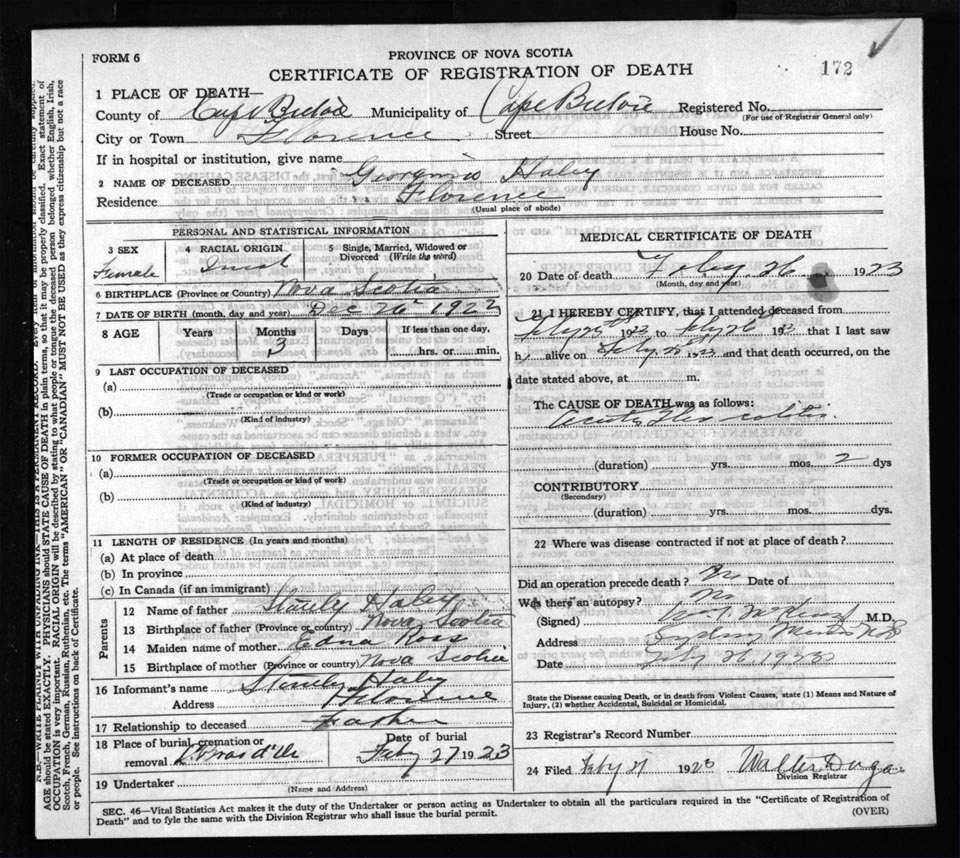 FORM 6
PROVINCE OF NOVA SCOTIA
CERTIFICATE OF REGISTRATION OF DEATH
172
1 PLACE OF DEATH—
County of Cape Breton Municipality of Cape Breton Registered No.
(For use of Registrar General only)
City or Town Florence Street House No.
If in hospital or institution, give name
2 NAME OF DECEASED Georgina Haley
Residence Florence
(Usual place of abode)
PERSONAL AND STATISTICAL INFORMATION
3 SEX 4 RACIAL ORIGIN 5 Single, Married, Widowed or
Divorced (Write the word)
Female
6 BIRTHPLACE (Province or Country) Nova Scotia
7 DATE OF BIRTH (month, day and year) Dec 26 1922
8 AGE Years Months Days If less than one day,
3 hrs. or min.
9 LAST OCCUPATION OF DECEASED
(a)
(Trade or occupation or kind or work)
(b)
(Kind of industry)
10 FORMER OCCUPATION OF DECEASED
(a)
(Trade or occupation or kind or work)
(b)
(Kind of industry)
11 LENGTH OF RESIDENCE (In years and months)
(a) At place of death
(b) In province
(c) In Canada (if an immigrant)
Parents
12 Name of father Stanley Haley
13 Birthplace of father (Province or country) Nova Scotia
14 Maiden name of mother Edna Ross
15 Birthplace of mother (Province or country) Nova Scotia
16 Informant's name Stanley Haley
Address Florence
17 Relationship to deceased Father
18 Place of burial, cremation or Date of burial
removal Feby 27 1923
19 Undertaker
(Name and Address)
MEDICAL CERTIFICATE OF DEATH
20 Date of death Feby 26 1923
(Month, day and year)
21 I HEREBY CERTIFY, that I attended deceased from
Feby 25th 1923 to Feby 26th 192 that I last saw
h alive on Feby 1923 and that death occurred, on the
date stated above, at m.
The CAUSE OF DEATH was as follows:
Acute colitis
(duration) yrs. mos. 2 dys
CONTRIBUTORY
(Secondary)
(duration) yrs. mos. dys.
22 Where was disease contracted if not at place of death?
Did an operation precede death? No Date of
Was there an autopsy? No
(Signed) M.D.
Address Sydney Mines N.S.
Date Feby 26 1923
State the Disease causing Death, or in death from Violent Causes, state (1) Means and Nature of
Injury, (2) whether Accidental, Suicidal or Homicidal.
23 Registrar's Record Number
24 Filed Feby 27 1923 Walter
Division Registrar
SEC. 46—Vital Statistics Act makes it the duty of the Undertaker or person acting as Undertaker to obtain all the particulars required in the "Certificate of Registration of
Death" and to fyle the same with the Division Registrar who shall issue the burial permit.
(OVER)
N.B.—WRITE PLAINLY WITH UNFADING INK—THIS IS A PERMANENT RECORD. Every item of information should be carefully supplied.
AGE should be stated EXACTLY. PHYSICIANS should STATE CAUSE OF DEATH in plain terms, so that it may be properly classified. Exact statement of
OCCUPATION is very important. RACIAL ORIGIN will be described by stating to what people or tongue the deceased person belonged whether English, Irish,
Scotch, French, German, Russian, Ruthenian, etc. The terms "AMERICAN" OR "CANADIAN" MUST NOT BE USED as they express citizenship but not a race
or people. See instructions on back of Certificate.